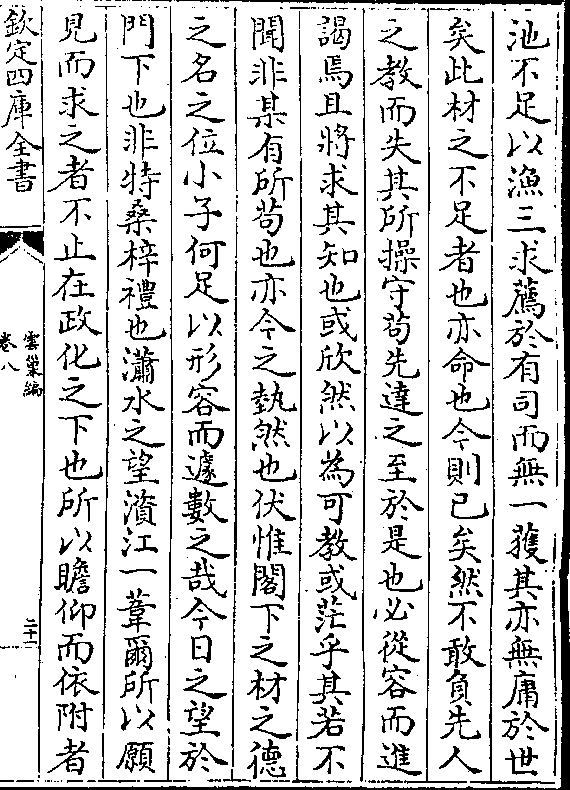 池不足以漁三求薦於有司而無一獲其亦無庸於世
矣此材之不足者也亦命也今則已矣然不敢負先人
之教而失其所操守苟先達之至於是也必從容而進
謁焉且將求其知也或欣然以為可教或茫乎其若不
聞非某有所苟也亦今之埶然也伏惟閣下之材之德
之名之位小子何足以形容而遽數之哉今日之望於
門下也非特桑梓禮也瀟水之望濱江一葦爾所以願
見而求之者不止在政化之下也所以瞻仰而依附者
欽定四庫全書
雲巢編
卷八
二十一